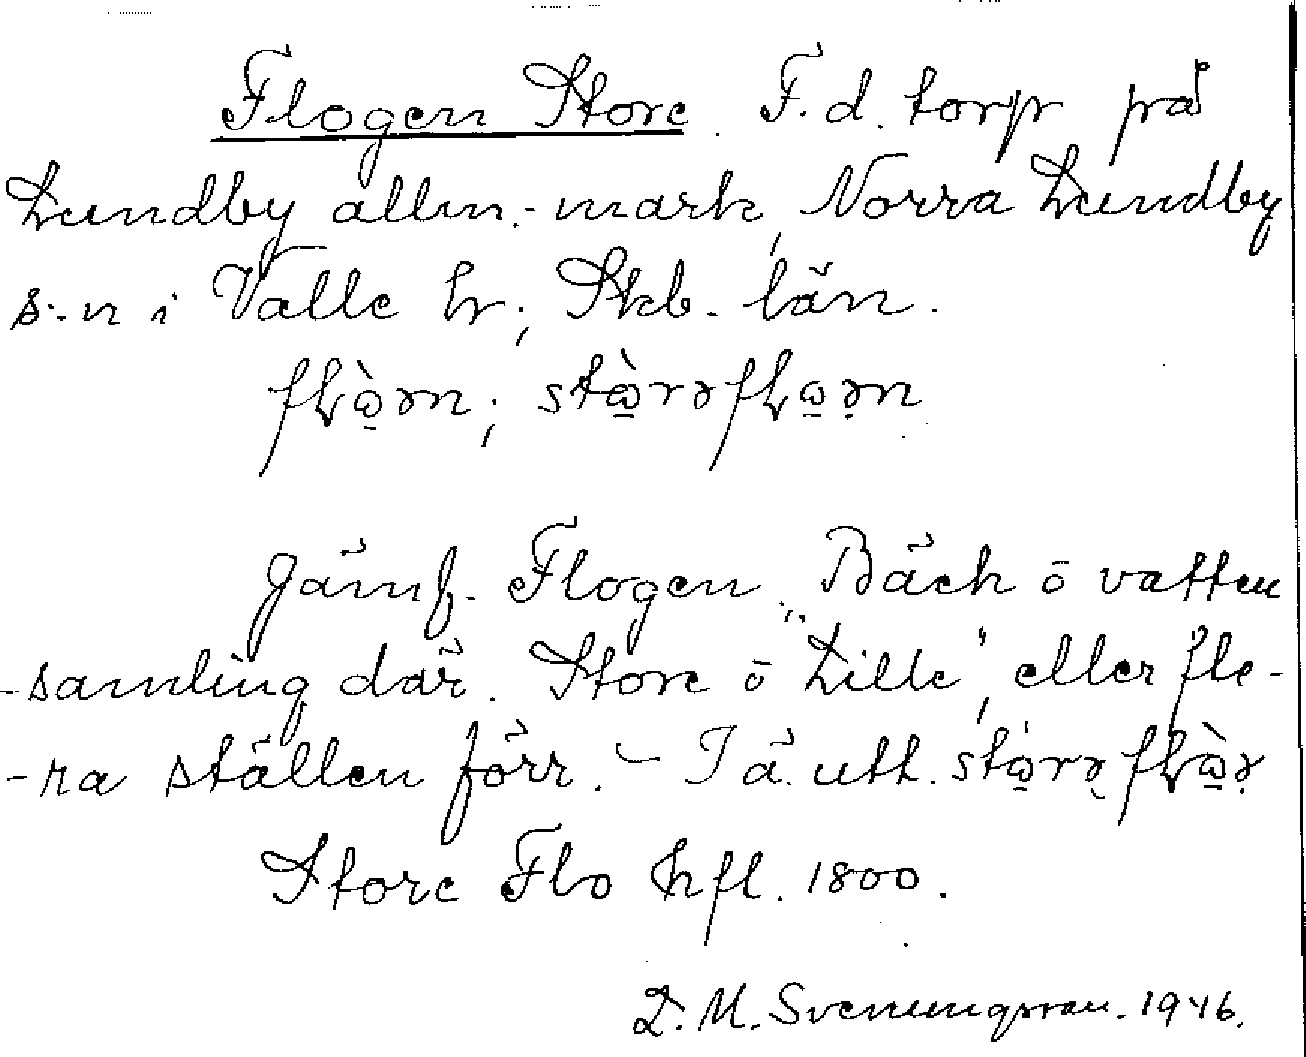 Flogen Store. F.d. torp på
Lundby allm.-mark, Norra Lundby
s:-n i Valle hr; Skb. län.

Jämf. Flogen. "Bäck ō vatten
-samling där. Store ō Lille", eller fle-
-ra ställen förr. – I ä. utt.
Store Flo hfl. 1800.
D. M. Svenungsson. 1946.